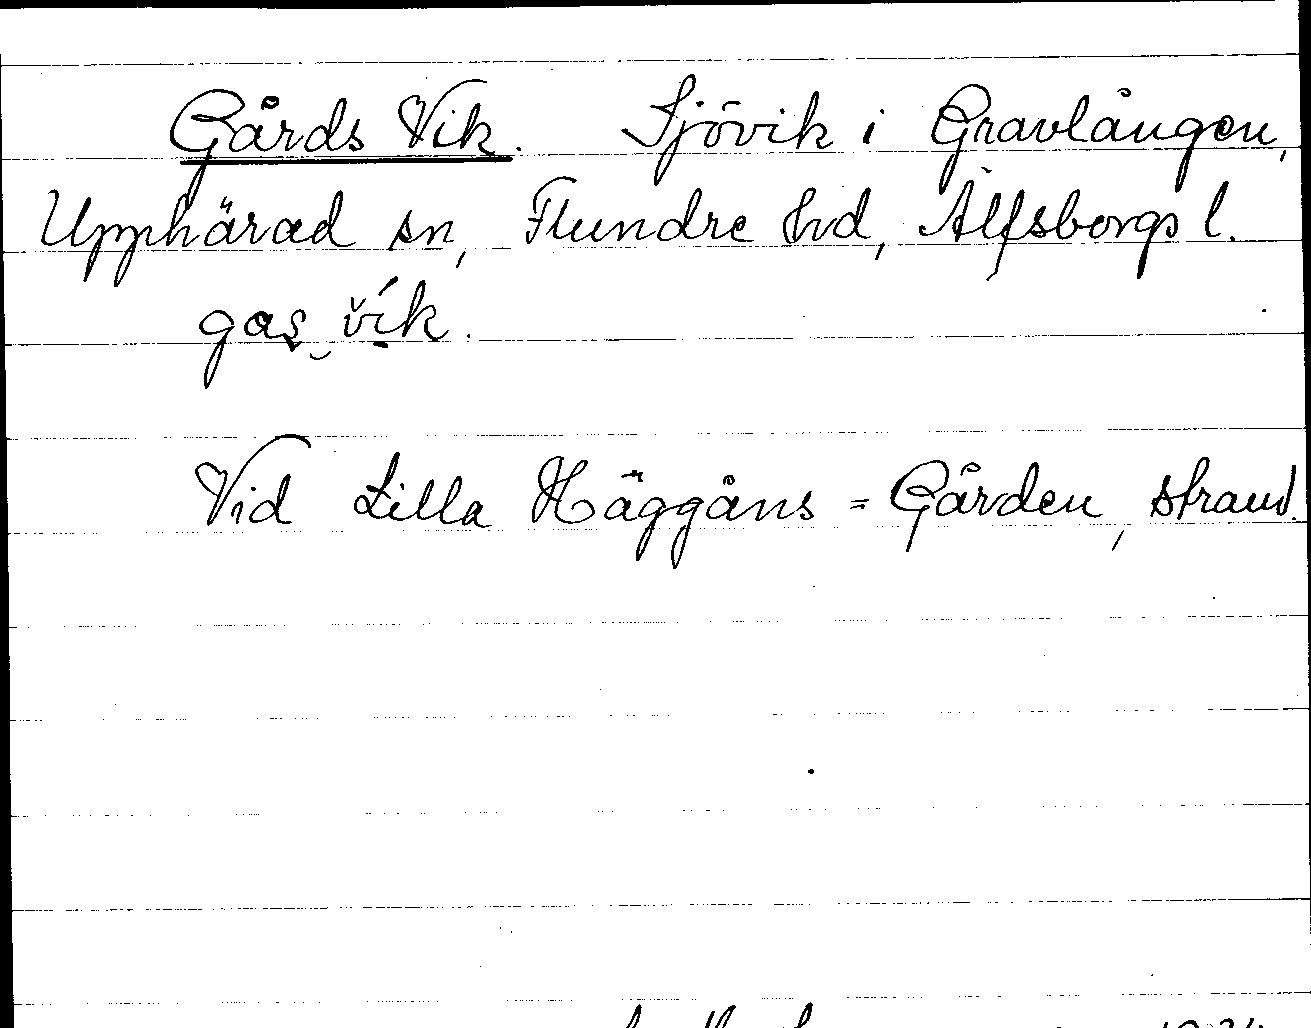 Gårds Vik. Sjövik i Gravlången,
Upphärad sn, Flundre hd, Älfsborgs l.
gas vik.
Vid Lilla Häggåns=Gården, strand.